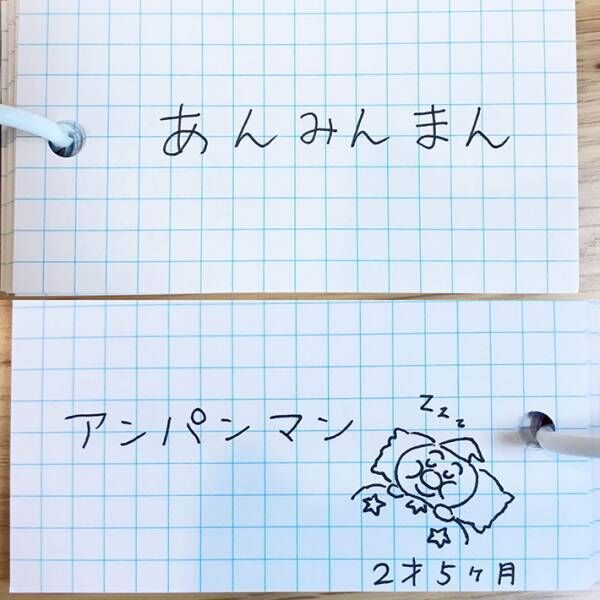 あんみんまん
アンパンマン
zzz
2才5ヶ月